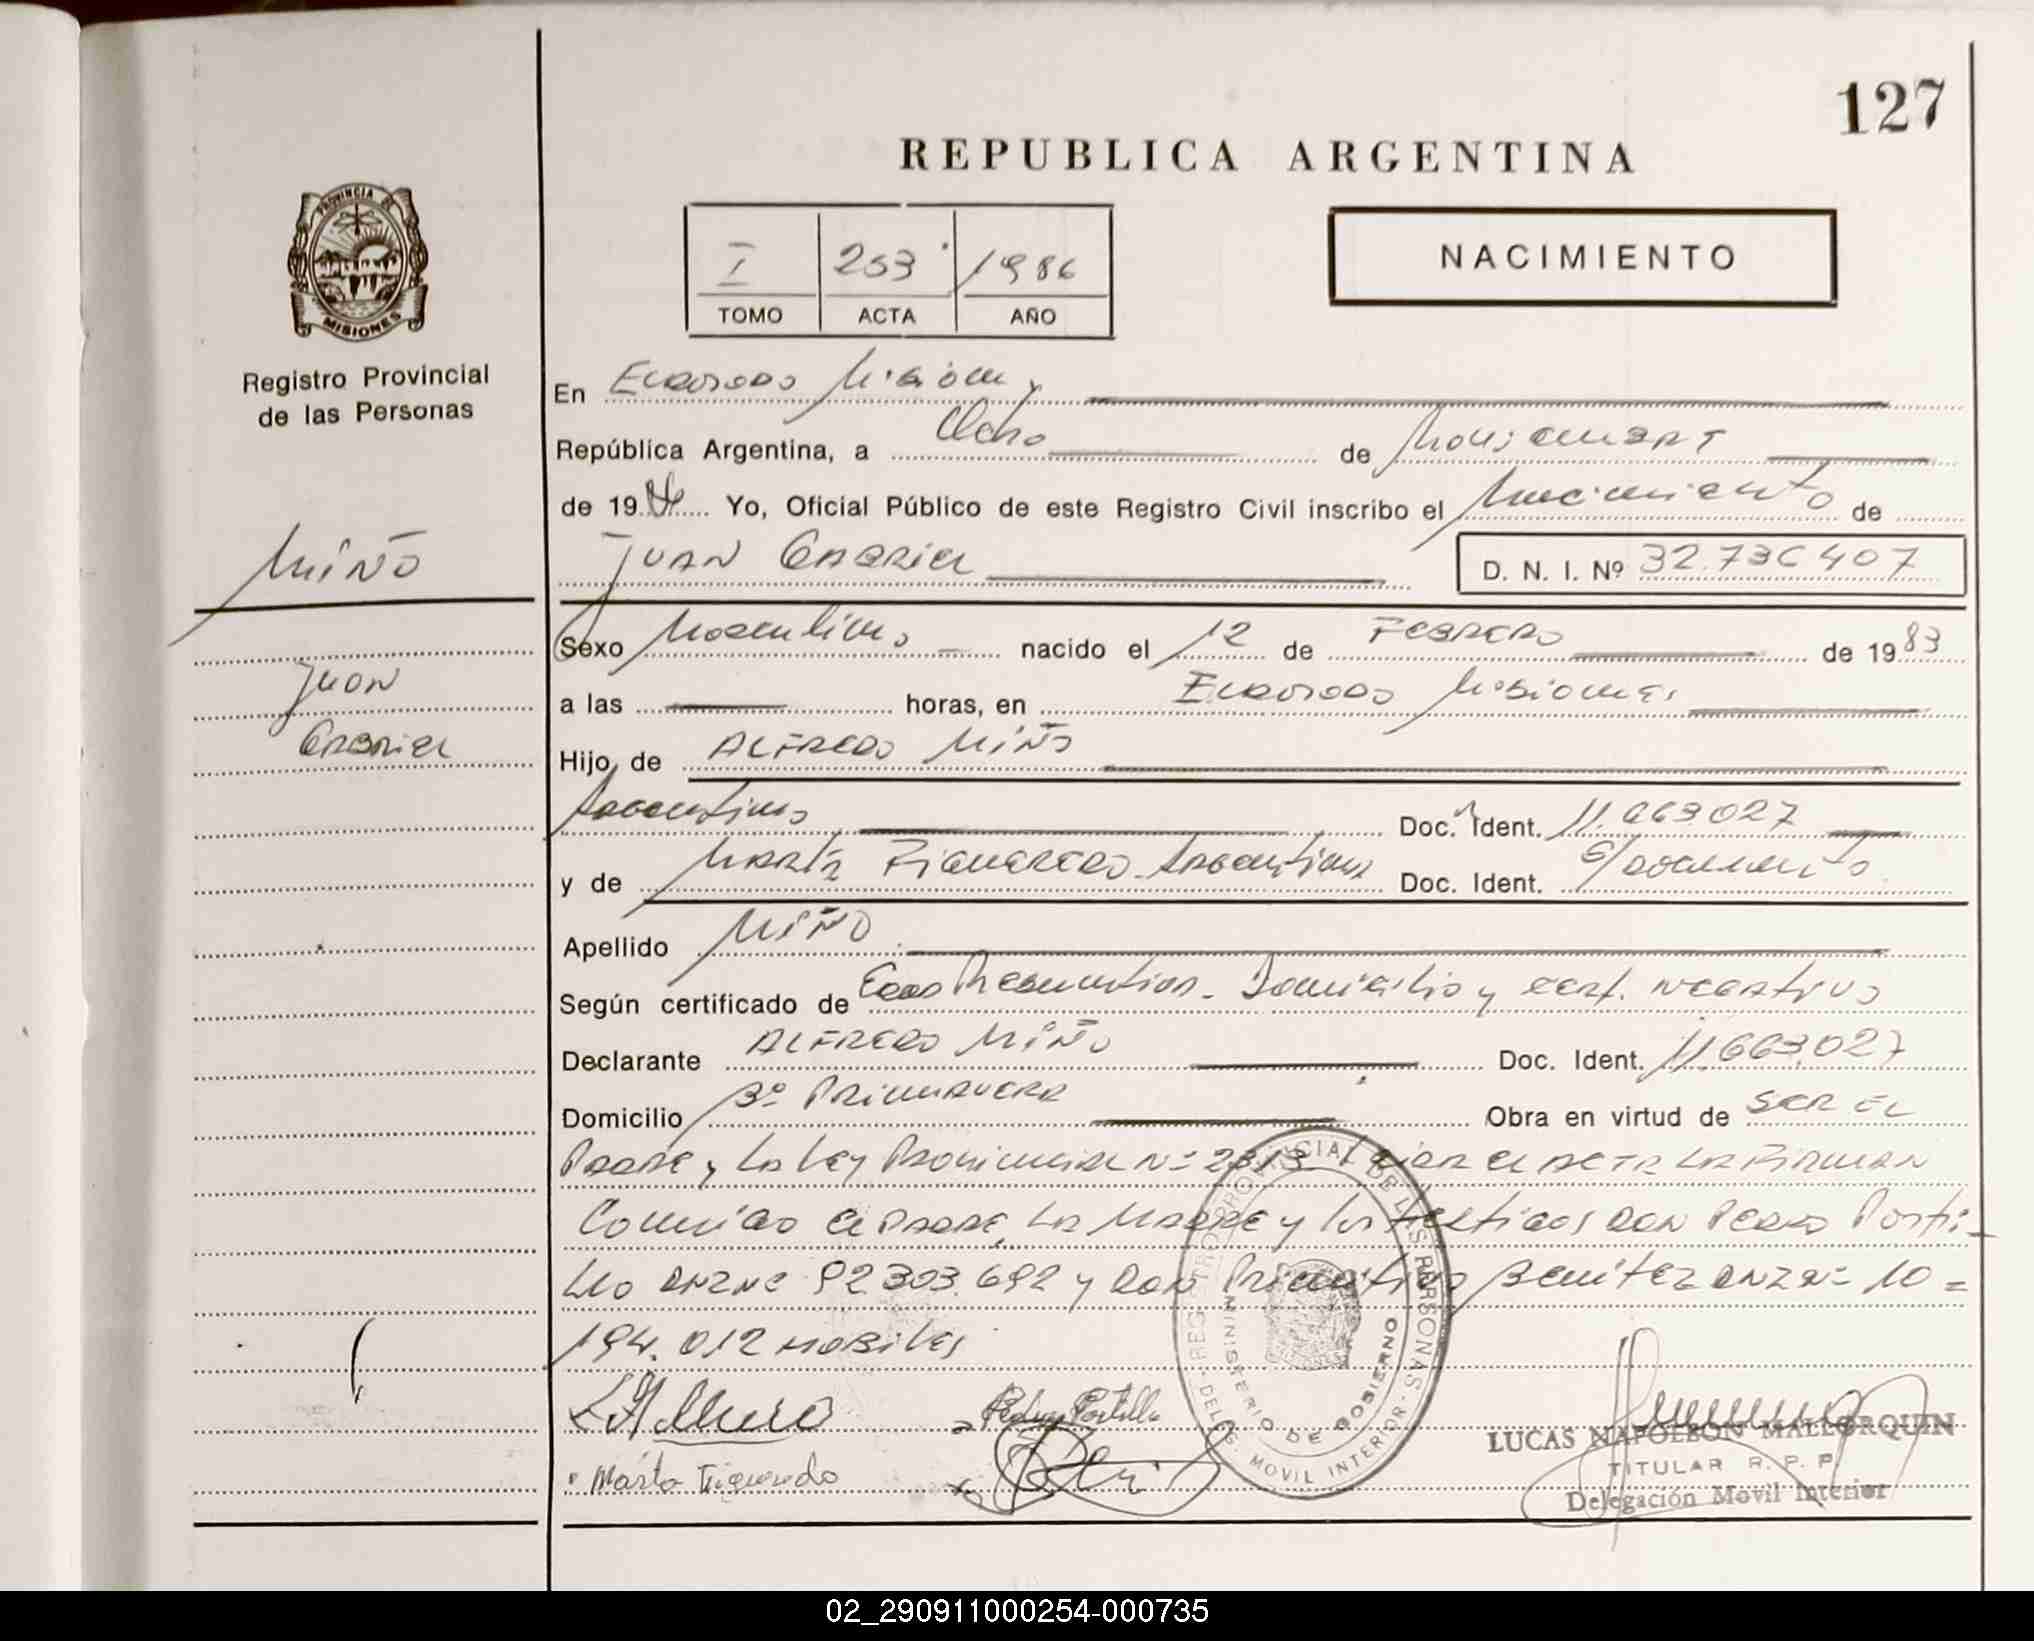 127
REPUBLICA ARGENTINA
PROVINCIA DE
MISIONES
Registro Provincial
de las Personas
I 253 1986
TOMO ACTA AÑO
NACIMIENTO
En Eldorado Misiones
República Argentina, a Ocho de Noviembre
de 1986 Yo, Oficial Público de este Registro Civil inscribo el Nacimiento de
Miño
JUAN GABRIEL D. N. I. Nº 32.736407
Sexo Masculino nacido el 12 de FEBRERO de 1983
Juan
a las horas, en Eldorado Misiones
Gabriel
Hijo de ALFREDO MIÑO
Argentino Doc. Ident. 11.663027
y de MARTA FIGUEREDO - Argentina Doc. Ident. S/Documento
Apellido MIÑO
Según certificado de Domicilio y cert. NEGATIVO
Declarante ALFREDO MIÑO Doc. Ident. 11.663.027
Domicilio Bº PRIMAVERA Obra en virtud de SER EL
PADRE y La Ley Provincial Nº 2313 el ACTA LA FIRMAN
Conmigo el PADRE, LA MADRE y los testigos DON PEDRO Porti-
LLO DNI Nº 92303.692 y DON Primitivo Benitez DNI Nº 10=
194.012 HABILES
Pedro Portillo
Marta Figueredo
REGISTRO PROVINCIAL DE LAS PERSONAS
DELEG. MOVIL INTERIOR
MINISTERIO DE GOBIERNO
LUCAS NAPOLEON MALLORQUIN
TITULAR R. P. P.
Delegación Movil Interior
02_290911000254-000735